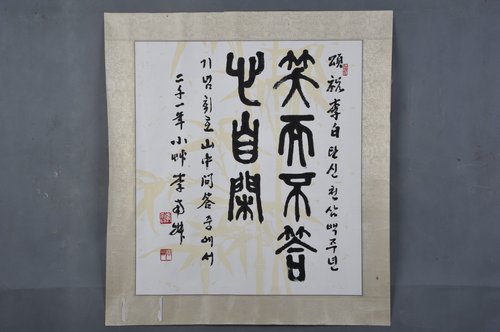 頌祝李白 탄신 천삼백주년
笑而不答
心自閑
기념 회로 山中問答 중에서
二千一年 小艸 李